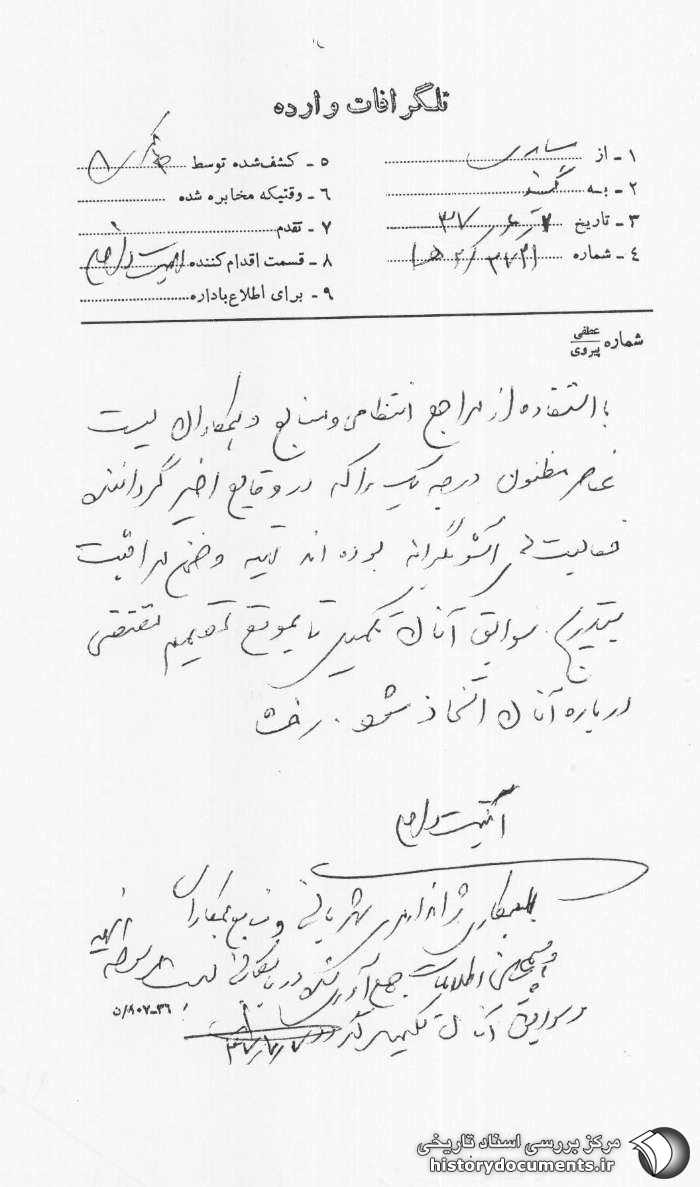 تلگرافات وارده
۱ - از ساری
۲ - به گنبد
۳ - تاریخ ۳۷
۴ - شماره
۵ - کشف‌شده توسط
۶ - وقتیکه مخابره شده
۷ - تقدم
۸ - قسمت اقدام‌کننده امنیت داخلی
۹ - برای اطلاع باداره
شماره عطفی پیروی
با استفاده از مراجع انتظامی و منابع و همکاران لیست
عناصر مظنون درجه یک را که در وقایع اخیر گرداننده
فعالیت‌های آشوبگرانه بوده اند تهیه و ضمن مراقبت
بتدریج سوابق آنان تکمیل تا بموقع تصمیم مقتضی
درباره آنان اتخاذ شود.
امنیت داخلی
همکاری ژاندارمری شهربانی و منابع همکاران
اطلاعات جمع آوری لیست مربوطه تهیه
و سوابق آنان تکمیل گردد
۳۶-۹۰۷/ن
مرکز بررسی اسناد تاریخی
historydocuments.ir